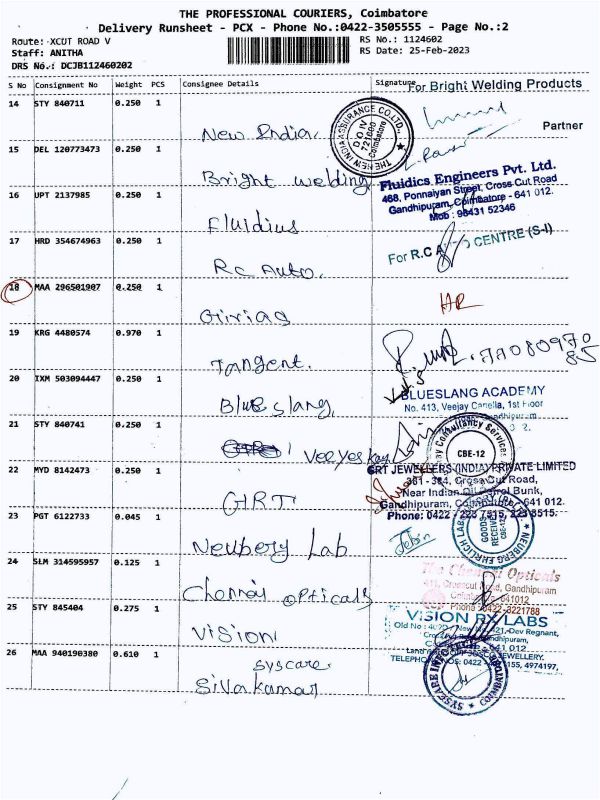 THE PROFESSIONAL COURIERS, Coimbatore
Delivery Runsheet - PCX - Phone No.:0422-3505555 - Page No.:2
Route: XCUT ROAD V
RS No.: 1124602
Staff: ANITHA
RS Date: 25-Feb-2023
DRS No.: DCJB112460202
S No Consignment No Weight PCS Consignee Details Signature
For Bright Welding Products
Partner
14 STY 840711 0.250 1
New India.
THE NEW INDIA ASSURANCE CO.LTD.,
15 DEL 120773473 0.250 1
Bright welding
Fluidics Engineers Pvt. Ltd.
468, Ponnaiyan Street, Cross Cut Road
Gandhipuram, Coimbatore - 641 012.
Mob : 98431 52346
16 UPT 2137985 0.250 1
Fluidius
17 HRD 354674963 0.250 1
Rc Auto.
For R.C A CENTRE (S-I)
18 MAA 296501907 0.250 1
Girias
HR
19 KRG 4480574 0.970 1
Tangent.
20 IXM 503094447 0.250 1
Blue slang,
BLUESLANG ACADEMY
No. 413, Veejay Canella, 1st Floor
21 STY 840741 0.250 1
Consultancy Services
CBE-12
22 MYD 8142473 0.250 1
GRT
GRT JEWELLERS (INDIA) PRIVATE LIMITED
Cross Cut Road,
Near Indian Oil Petrol Bunk,
Gandhipuram, Coimbatore - 641 012.
23 PGT 6122733 0.045 1
Neubery Lab
Jebin
GOODS RECEIVED
NEUBERG EHRLICH LAB
24 SLM 314595957 0.125 1
Chennai opticals
The Chennai Opticals
Crosscut Road, Gandhipuram
Coimbatore 641012
Phone 0422-3221788
25 STY 845404 0.275 1
Vision
VISION RX LABS
Dev Regnant,
JEWELLERY.
26 MAA 940190380 0.610 1
syscare
Sivakumar